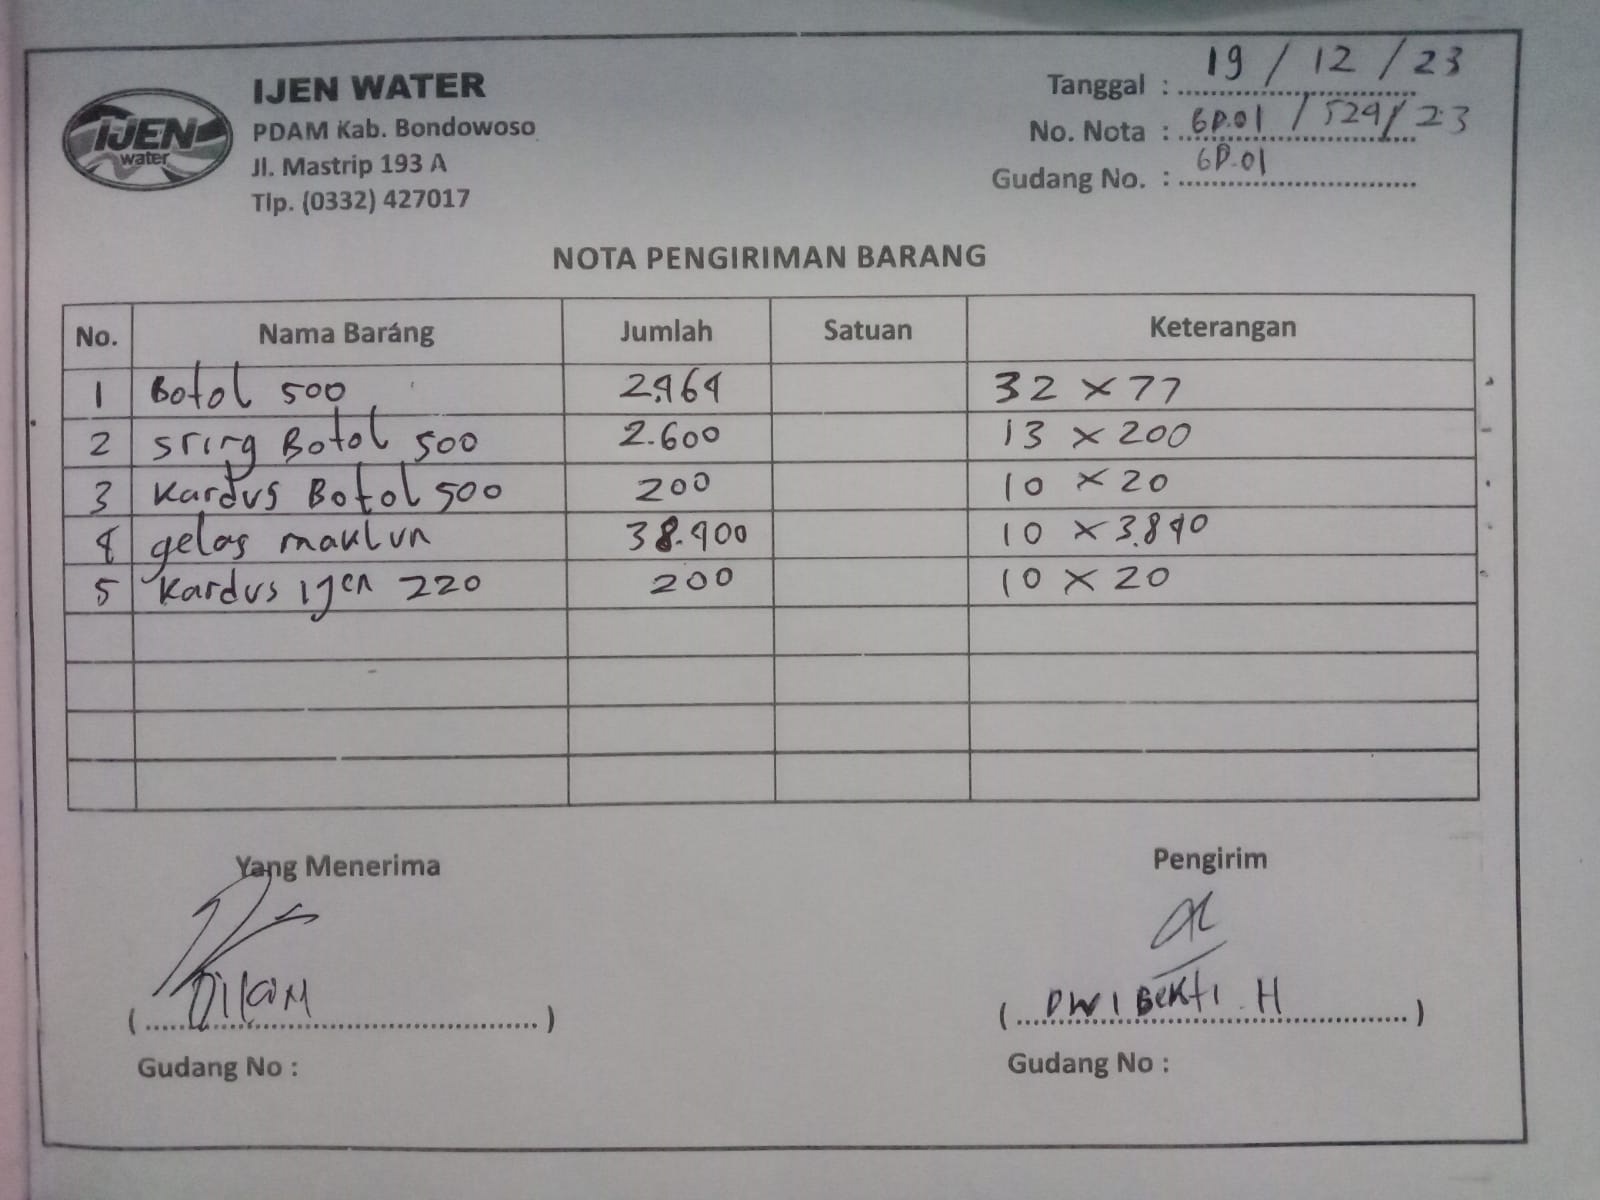 IJEN
water
IJEN WATER
PDAM Kab. Bondowoso
Jl. Mastrip 193 A
Tlp. (0332) 427017
Tanggal : 19 / 12 / 23
No. Nota : GD.01 / 529 / 23
Gudang No. : GD.01
NOTA PENGIRIMAN BARANG
No. Nama Barang Jumlah Satuan Keterangan
1 Botol 500 2.464 32 x 77
2 Sring Botol 500 2.600 13 x 200
3 Kardus Botol 500 200 10 x 20
4 gelas maklun 38.400 10 x 3.840
5 Kardus Ijen 220 200 10 x 20
Yang Menerima Pengirim
( ) ( DWI BEKTI . H )
Gudang No : Gudang No :